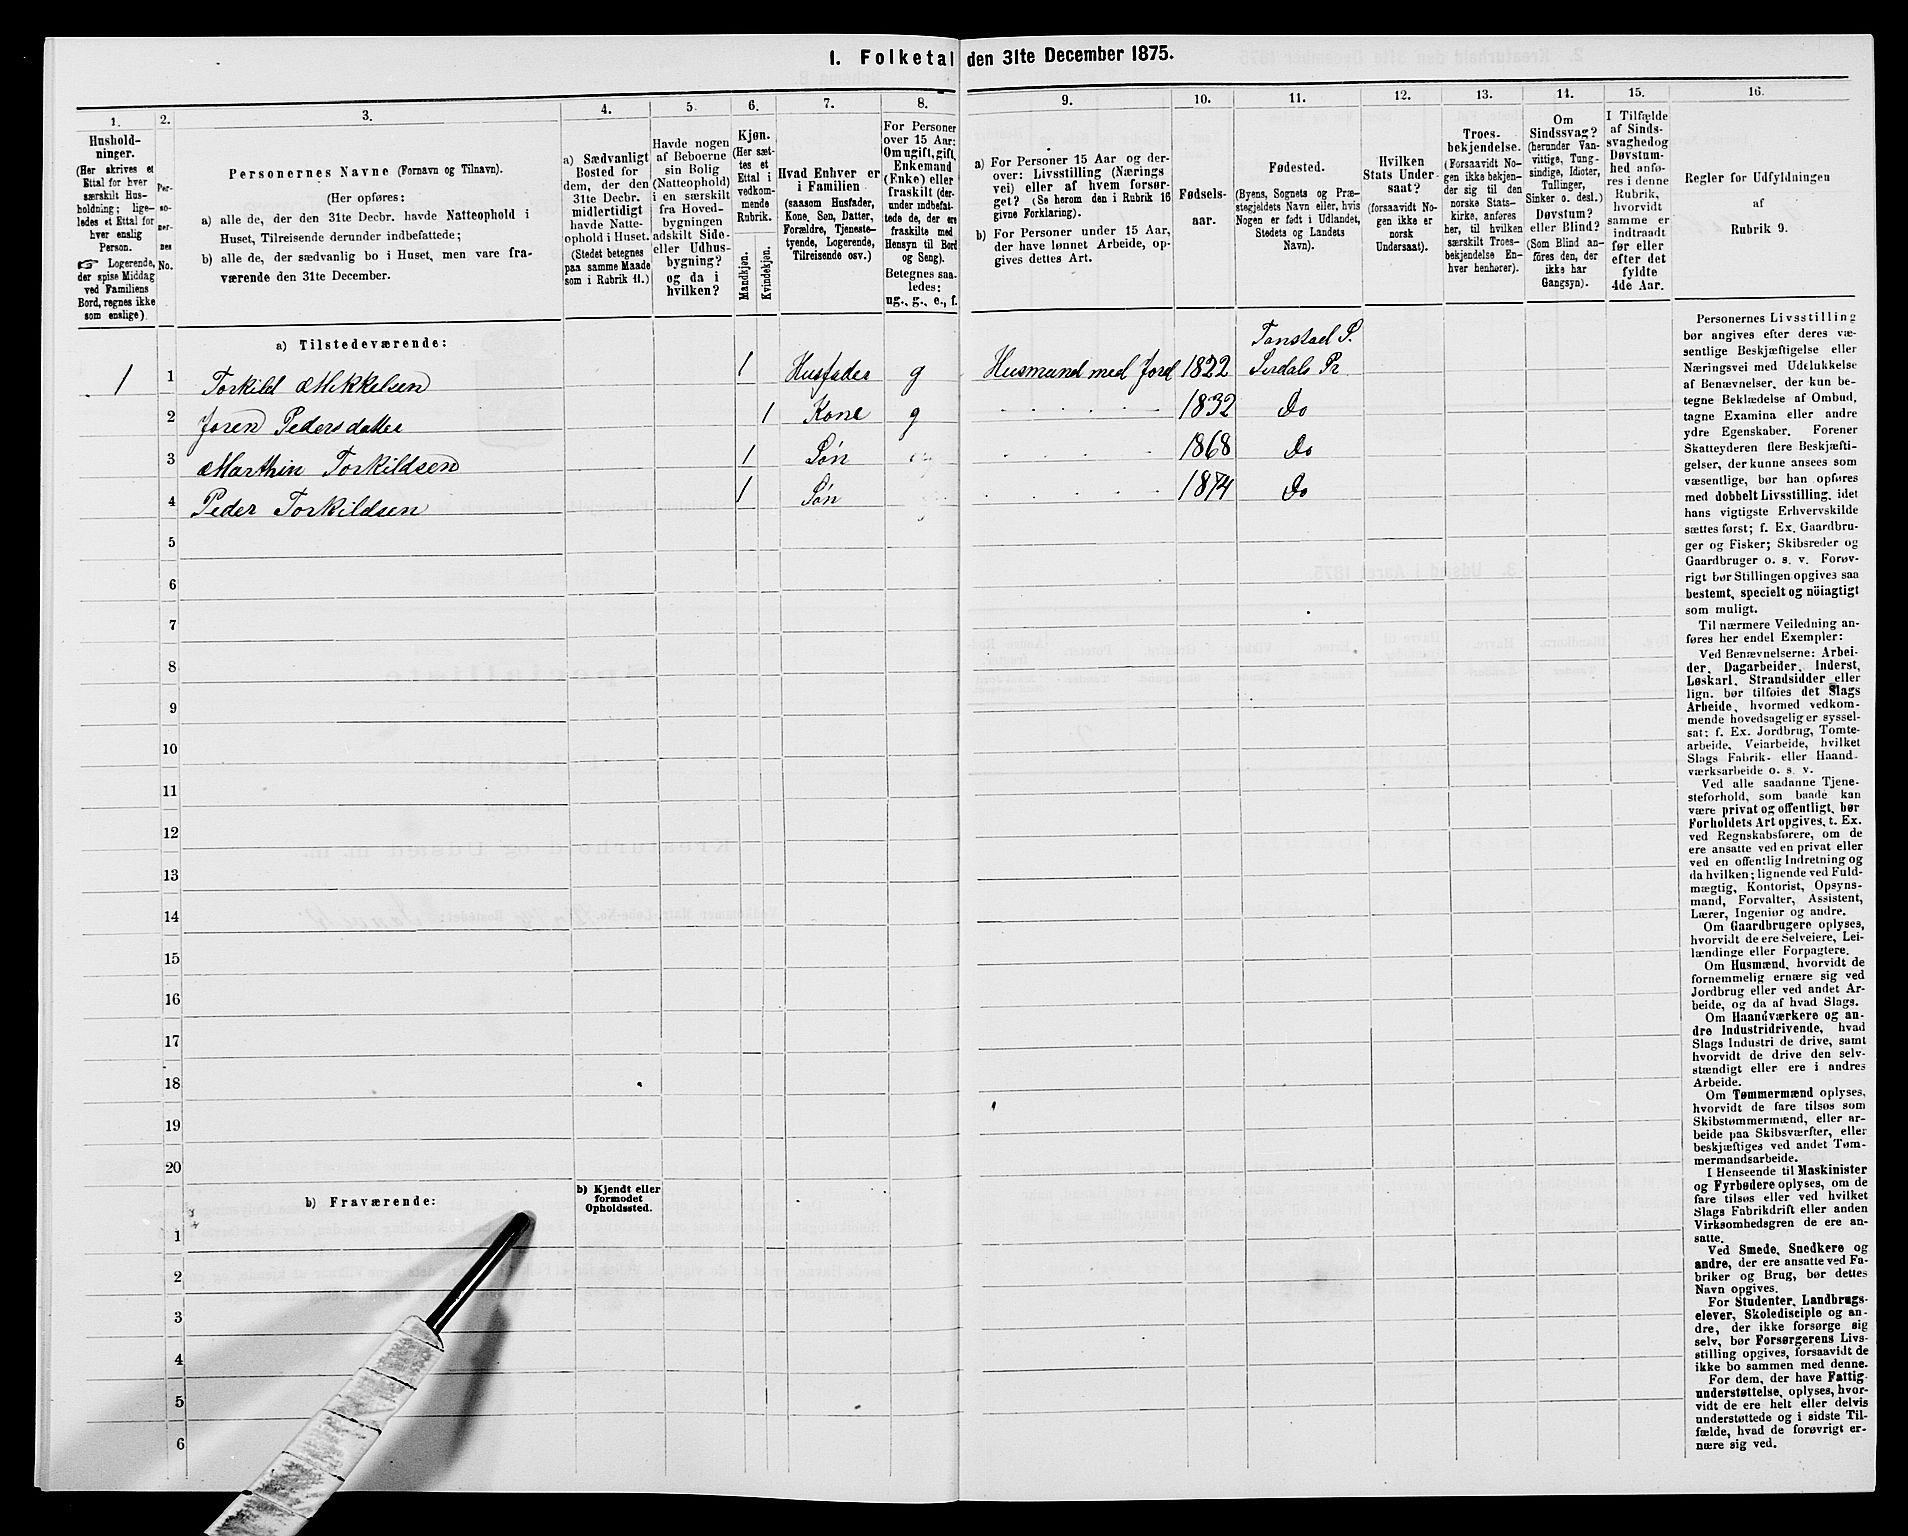 1. Folketal den 31te December 1875.
1.
2.
3.
4.
5.
6.
7.
8.
9.
10.
11.
12.
13.
14.
15.
16.
Hushold-
ninger.
(Her skrives et
Ettal for hver
særskilt Hus-
holdning; lige-
ledes et Ettal for
hver enslig
Person.
☞ Logerende,
der spise Middag
ved Familiens
Bord, regnes ikke
som enslige).
Per-
so-
ner-
nes
No.
Personernes Navne (Fornavn og Tilnavn).
(Her opføres:
a) alle de, der den 31te Decbr. havde Natteophold i
Huset, Tilreisende derunder indbefattede;
b) alle de, der sædvanlig bo i Huset, men vare fra-
værende den 31te December.
a) Sædvanligt
Bosted for
dem, der den
31te Decbr.
midlertidigt
havde Natte-
ophold i Huset.
(Stedet betegnes
paa samme Maade
som i Rubrik 11.)
Havde nogen
af Beboerne
sin Bolig
(Natteophold)
i en særskilt
fra Hoved-
bygningen
adskilt Side-
eller Udhus-
bygning?
og da i
hvilken?
Kjøn.
(Her sæt-
tes et
Ettal i
vedkom-
mende
Rubrik.
Mandkjøn.
Kvindekjøn.
Hvad Enhver er
i Familien
(saasom Husfader,
Kone, Søn, Datter,
Forældre, Tjeneste-
tyende, Logerende,
Tilreisende osv.)
For Personer
over 15 Aar:
Om ugift, gift,
Enkemand
(Enke) eller
fraskilt (der-
under indbefat-
tede de, der ere
fraskilte med
Hensyn til Bord
og Seng).
Betegnes saa-
ledes:
ug., g., e., f.
a) For Personer 15 Aar og der-
over: Livsstilling (Nærings
vei) eller af hvem forsør-
get? (Se herom den i Rubrik 16
givne Forklaring).
b) For Personer under 15 Aar,
der have lønnet Arbeide, op-
gives dettes Art.
Fødsels-
aar.
Fødested.
(Byens, Sognets og Præ-
stegjeldets Navn eller, hvis
Nogen er født i Udlandet,
Stedets og Landets
Navn).
Hvilken
Stats Under-
saat?
(forsaavidt No-
gen ikke er
norsk
Undersaat).
Troes-
bekjendelse.
(Forsaavidt No-
gen ikke bekjen-
der sig til den
norske Stats-
kirke, anføres
her, til hvilken
særskilt Troes-
bekjendelse En-
hver henhører).
Om
Sindssvag?
(herunder Van-
vittige, Tung-
sindige, Idioter,
Tullinger,
Sinker o. desl.)
Døvstum?
eller Blind?
(Som Blind an-
føres den, der
ikke har
Gangsyn).
I Tilfælde
af Sinds-
svaghed og
Døvstum-
hed anfø-
res i denne
Rubrik,
hvorvidt
samme er
indtraadt
før eller
efter det
fyldte
4de Aar.
Regler for Udfyldningen
af
Rubrik 9.
a) Tilstedeværende:
1 1 Torkild Mikkelsen 1 Husfader g Husmand med Jord 1822 Tonstad S.
Sirdals Pr
2 Joren Pedersdatter 1 Kone g 1832 Do
3 Marthin Torkildsen 1 Søn 1868 Do
4 Peder Torkildsen 1 Søn 1874 Do
5
6
7
8
9
10
11
12
13
14
15
16
17
18
19
20
b) Fraværende:
b) Kjendt eller
formodet
Opholdssted.
1
2
3
4
5
6
Personernes Livsstilling
bør angives efter deres væ-
sentlige Beskjæftigelse eller
Næringsvei med Udelukkelse
af Benævnelser, der kun be-
tegne Beklædelse af Ombud,
tagne Examina eller andre
ydre Egenskaber. Forener
Skatteyderen flere Beskjæfti-
gelser, der kunne ansees som
væsentlige, bør han opføres
med dobbelt Livsstilling, idet
hans vigtigste Erhvervskilde
sættes først; f. Ex. Gaardbru-
ger og Fisker; Skibsreder og
Gaardbruger o. s. v. Forøv-
rigt bør Stillingen opgives saa
bestemt, specielt og nöiagtigt
som muligt.
Til nærmere Veiledning an-
føres her endel Exempler:
Ved Benævnelserne: Arbei-
der, Dagarbeider, Inderst,
Løskarl, Strandsidder eller
lign. bør tilføies det Slags
Arbeide, hvormed vedkom-
mende hovedsagelig er syssel-
sat; f. Ex. Jordbrug, Tomte-
arbeide, Veiarbeide, hvilket
Slags Fabrik- eller Haand-
værksarbeide o. s. v.
Ved alle saadanne Tjene-
steforhold, som baade kan
være privat og offentligt, bør
Forholdets Art opgives, t. Ex.
ved Regnskabsførere, om de
ere ansatte ved en privat eller
ved en offentlig Indretning og
da hvilken; lignende ved Fuld-
mægtig, Kontorist, Opsyns-
mand, Forvalter, Assistent,
Lærer, Ingeniør og andre.
Om Gaardbrugere oplyses,
hvorvidt de ere Selveiere, Lei-
lændinge eller Forpagtere.
Om Husmænd, hvorvidt de
fornemmelig ernære sig ved
Jordbrug eller ved andet Ar-
beide, og da af hvad Slags.
Om Haandværkere og an-
dre Industridrivende, hvad
Slags Industri de drive, samt
hvorvidt de drive den selv-
stændigt eller ere i andres
Arbeide.
Om Tømmermænd oplyses,
hvorvidt de fare tilsøs som
Skibstømmermænd, eller ar-
beide paa Skibsværfter, eller
beskjæftiges ved andet Tøm-
mermandsarbeide.
I Henseende til Maskinister
og Fyrbødere oplyses, om de
fare tilsøs eller ved hvilket
Slags Fabrikdrift eller anden
Virksomhedsgren de ere an-
satte.
Ved Smede, Snedkere og
andre, der ere ansatte ved Fa-
briker og Brug, bør dettes
Navn opgives.
For Studenter, Landbrugs-
elever, Skoledisciple og an-
dre, der ikke forsørge sig
selv, bør Forsørgerens Livs-
stilling opgives, forsaavidt de
ikke bo sammen med denne.
For dem, der have Fattig-
understøttelse, oplyses, hvor-
vidt de ere helt eller delvis
understøttede og i sidste Til-
fælde, hvad de forøvrigt er-
nære sig ved.